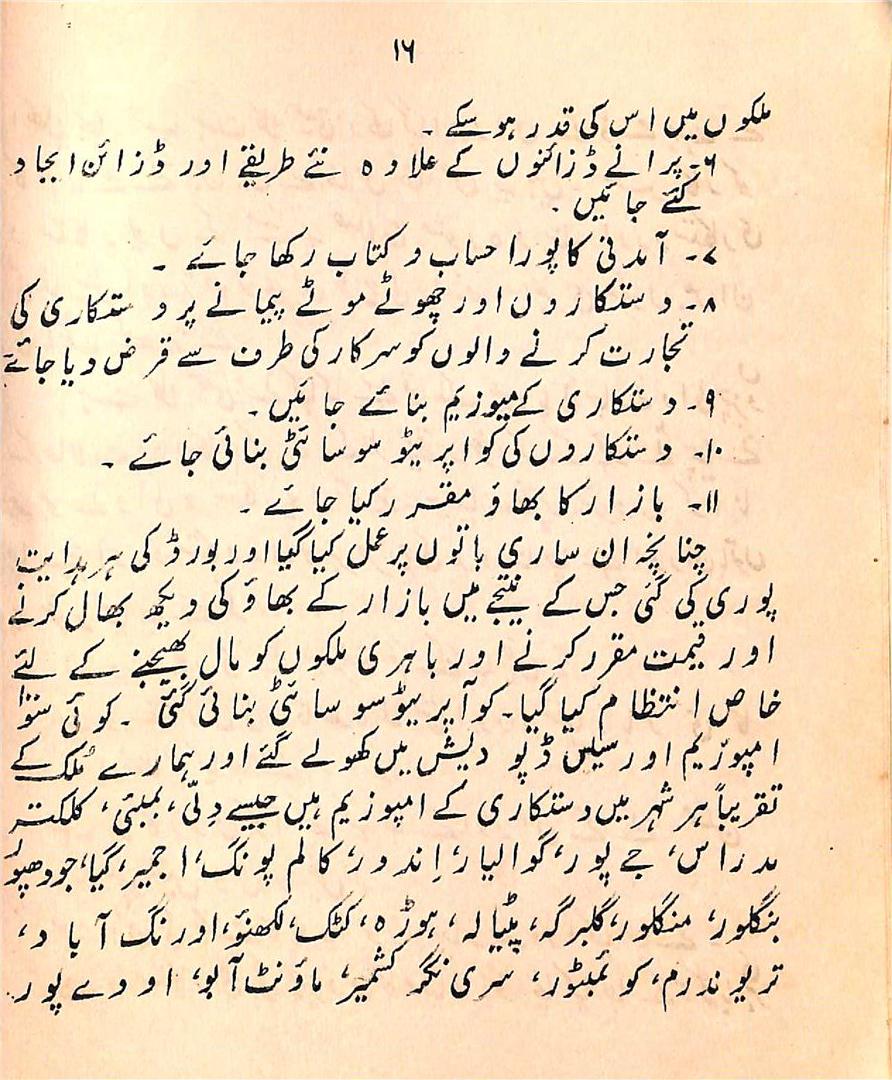 ۱۶
ملکوں میں اس کی قدر ہوسکے ۔
۶۔ پرانے ڈزائنوں کے علاوہ نئے طریقے اور ڈزائن ایجاد
کئے جائیں ۔
۷۔ آمدنی کا پورا حساب و کتاب رکھا جائے ۔
۸۔ دستکاروں اور چھوٹے موٹے پیمانے پر دستکاری کی
تجارت کرنے والوں کو سرکار کی طرف سے قرض دیا جائے
۹۔ دستکاری کے میوزیم بنائے جائیں ۔
۱۰۔ دستکاروں کی کواپریٹو سوسائٹی بنائی جائے ۔
۱۱۔ بازار کا بھاؤ مقرر کیا جائے ۔
چنانچہ ان ساری باتوں پر عمل کیا گیا اور بورڈ کی ہر ہدایت
پوری کی گئی جس کے نتیجے میں بازار کے بھاؤ کی دیکھ بھال کرنے
اور قیمت مقرر کرنے اور باہری ملکوں کو مال بھیجنے کے لئے
خاص انتظام کیا گیا۔ کوآپریٹو سوسائٹی بنائی گئی ۔ کوئی سَو
امپوزیم اور سیلس ڈپو دیش میں کھولے گئے اور ہمارے مُلک کے
تقریباً ہر شہر میں دستکاری کے امپوزیم ہیں جیسے دِلّی، بمبئی، کلکتہ
مدراس، جے پور، گوالیار، اِندور، کالم پونگ، اجمیر، گیا، جودھپور
بنگلور، منگلور، گلبرگہ، پٹیالہ، ہوڑہ، کٹک، لکھنؤ، اورنگ آباد،
تریوندرم، کوئمبٹور، سری نگر کشمیر، ماؤنٹ آبو، اودے پور،